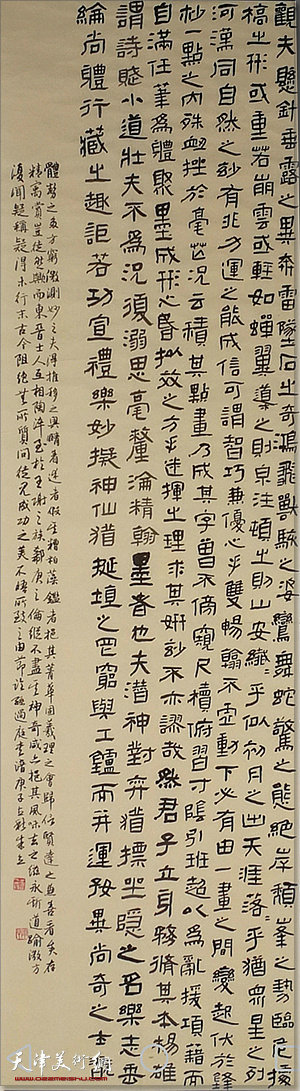 觀夫懸針垂露之異奔雷墜石之奇鴻飛獸駭之姿鸞舞蛇驚之態絕岸頹峯之勢臨危據
槁之形或重若崩雲或輕如蟬翼導之則泉注頓之則山安纖〻乎似初月之出天涯落〻乎猶眾星之列
河漢同自然之妙有非力運之能成信可謂智巧兼優心手雙暢翰不虛動下必有由一畫之間變起伏於鋒
杪一點之內殊衄挫於毫芒況云積其點畫乃成其字曾不傍窺尺牘俯習寸陰引班超以為亂援項籍而
自滿任筆為體聚墨成形心昏擬效之方手迷揮之理求其妍妙不亦謬哉然君子立身務脩其本揚雄
謂詩賦小道壯夫不為況復溺思毫釐淪精翰墨者也夫潛神對弈猶標坐隱之名樂志垂
綸尚體行藏之趣詎若功宣禮樂妙擬神仙猶埏埴之罔窮與工鑪而并運好異尚奇之士翫
體勢之多方窮微測妙之夫得推移之奧賾著述者假其糟粕藻鑑者挹其菁華固義理之會歸信賢達之兼善者矣存
精寓賞豈徒然與而東晉士人互相陶淬至於王謝之族郗庾之倫縱不盡其神奇咸亦挹其風味去之滋永斯道逾微方
復聞疑稱疑得末行末古今阻絕無所質問 成功之美不悟所致之由 過庭書譜庚子
天津美術網